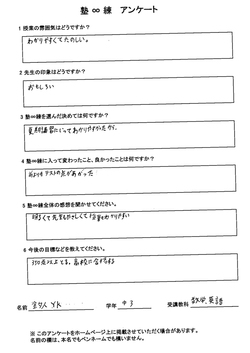 塾∞練 アンケート
1 授業の雰囲気はどうですか？
わかりやすくてたのしい。
2 先生の印象はどうですか？
おもしろい
3 塾∞練を選んだ決めては何ですか？
夏期講習に行ってわかりやすかったから。
4 塾∞練に入って変わったこと、良かったことは何ですか？
テストの点があがった
5 塾∞練全体の感想を聞かせてください。
明るくて先生もやさしくて授業もわかりやすい
6 今後の目標などを教えてください。
350点以上とる。高校に合格
名前 Y.K 学年 中3 受講教科 数学 英語
※ このアンケートをホームページ上に掲載させていただく場合があります。
名前の欄は、本名でもペンネームでも構いません。